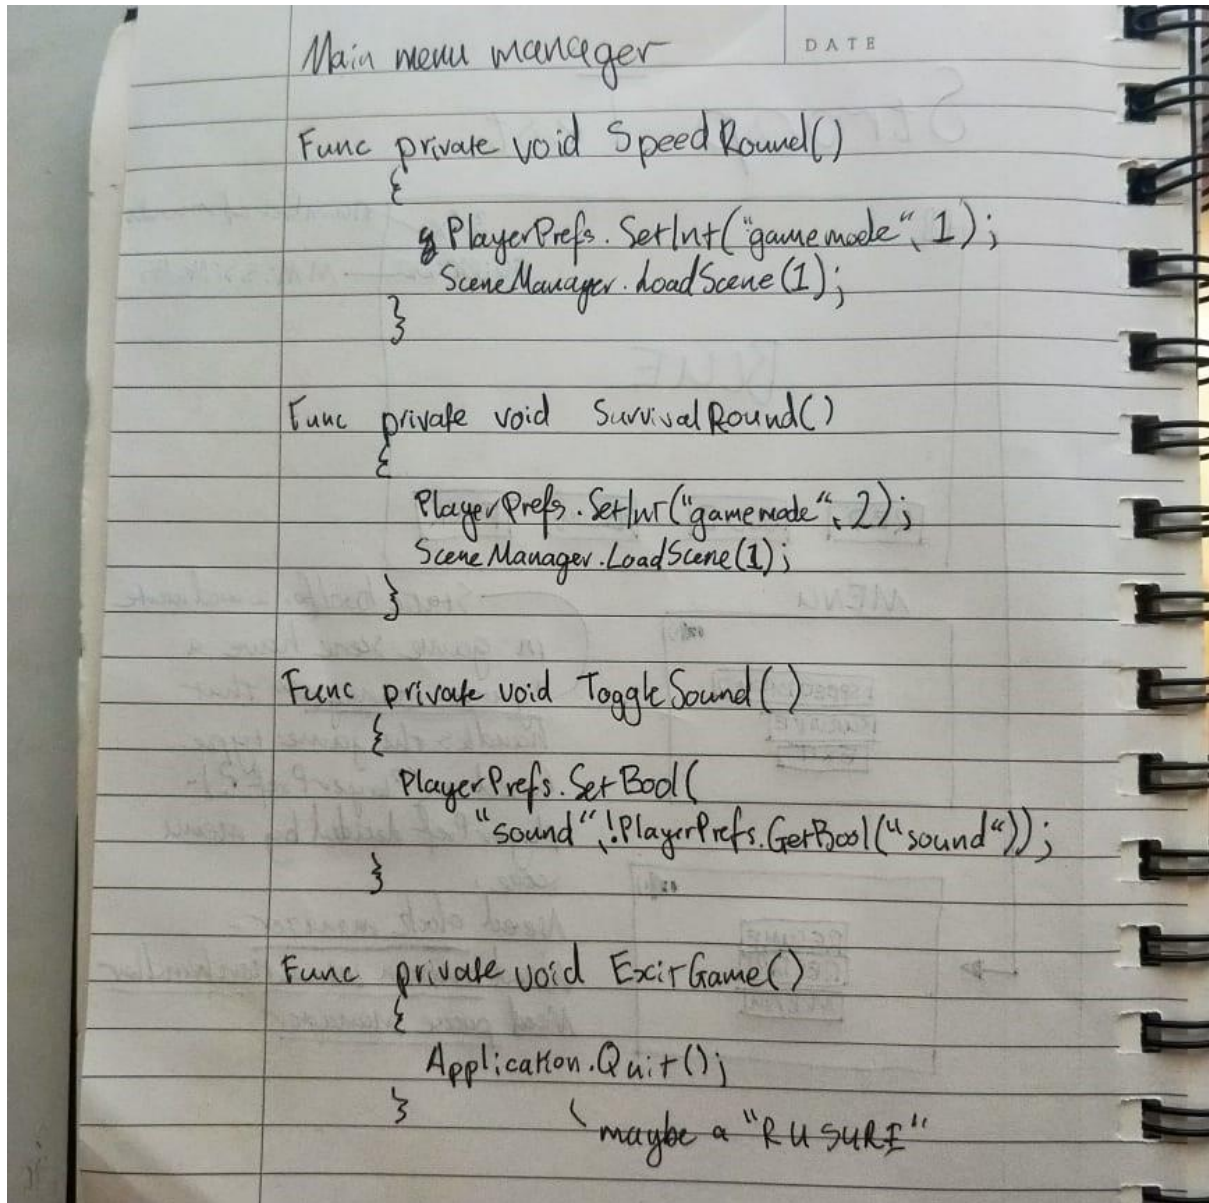 DATE
Main menu manager
Func private void SpeedRound()
{
PlayerPrefs.SetInt("gamemode", 1);
SceneManager.LoadScene(1);
}
Func private void SurvivalRound()
{
PlayerPrefs.SetInt("gamemode", 2);
SceneManager.LoadScene(1);
}
Func private void ToggleSound()
{
PlayerPrefs.SetBool(
"sound", !PlayerPrefs.GetBool("sound"));
}
Func private void ExitGame()
{
Application.Quit();
}
maybe a "R U SURE"